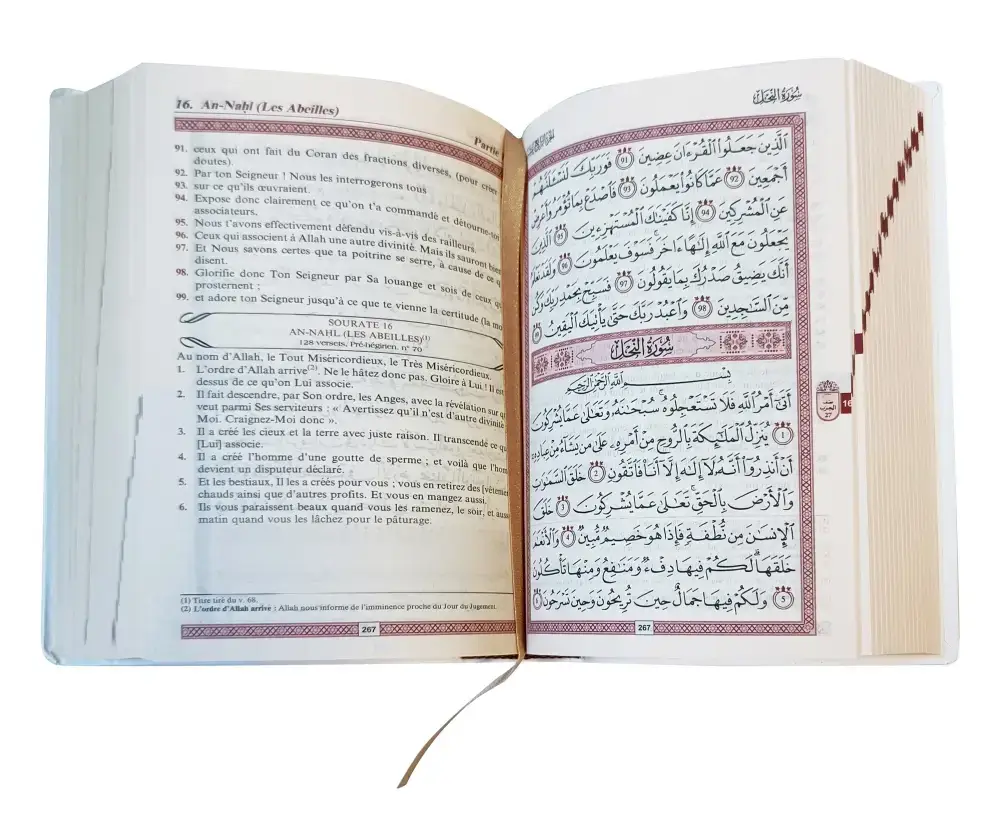 16. An-Naḥl (Les Abeilles)
Partie
91. ceux qui ont fait du Coran des fractions diverses, (pour créer
doutes).
92. Par ton Seigneur ! Nous les interrogerons tous
93. sur ce qu'ils œuvraient.
94. Expose donc clairement ce qu'on t'a commandé et détourne-toi
associateurs.
95. Nous t'avons effectivement défendu vis-à-vis des railleurs.
96. Ceux qui associent à Allah une autre divinité. Mais ils sauront bien
97. Et Nous savons certes que ta poitrine se serre, à cause de ce q
disent.
98. Glorifie donc Ton Seigneur par Sa louange et sois de ceux qu
prosternent ;
99. et adore ton Seigneur jusqu'à ce que te vienne la certitude (la mo
SOURATE 16
AN-NAHL (LES ABEILLES)(1)
128 versets, Pré-hégirien. n° 70
Au nom d'Allah, le Tout Miséricordieux, le Très Miséricordieux.
1. L'ordre d'Allah arrive(2). Ne le hâtez donc pas. Gloire à Lui ! Il est
dessus de ce qu'on Lui associe.
2. Il fait descendre, par Son ordre, les Anges, avec la révélation sur q
veut parmi Ses serviteurs : « Avertissez qu'il n'est d'autre divinité
Moi. Craignez-Moi donc ».
3. Il a créé les cieux et la terre avec juste raison. Il transcende ce qu
[Lui] associe.
4. Il a créé l'homme d'une goutte de sperme ; et voilà que l'hom
devient un disputeur déclaré.
5. Et les bestiaux, Il les a créés pour vous ; vous en retirez des [vêtemen
chauds ainsi que d'autres profits. Et vous en mangez aussi.
6. Ils vous paraissent beaux quand vous les ramenez, le soir, et aussi
matin quand vous les lâchez pour le pâturage.
(1) Titre tiré du v. 68.
(2) L'ordre d'Allah arrive : Allah nous informe de l'imminence proche du Jour du Jugement.
267
سُورَةُ النَّحْلِ
الَّذِينَ جَعَلُوا الْقُرْءَانَ عِضِينَ ٩١ فَوَرَبِّكَ لَنَسْـَٔلَنَّهُمْ
أَجْمَعِينَ ٩٢ عَمَّا كَانُوا يَعْمَلُونَ ٩٣ فَاصْدَعْ بِمَا تُؤْمَرُ وَأَعْرِضْ
عَنِ الْمُشْرِكِينَ ٩٤ إِنَّا كَفَيْنَاكَ الْمُسْتَهْزِءِينَ ٩٥ الَّذِينَ
يَجْعَلُونَ مَعَ اللَّهِ إِلَٰهًا ءَاخَرَ فَسَوْفَ يَعْلَمُونَ ٩٦ وَلَقَدْ نَعْلَمُ
أَنَّكَ يَضِيقُ صَدْرُكَ بِمَا يَقُولُونَ ٩٧ فَسَبِّحْ بِحَمْدِ رَبِّكَ وَكُن
مِّنَ السَّاجِدِينَ ٩٨ وَاعْبُدْ رَبَّكَ حَتَّىٰ يَأْتِيَكَ الْيَقِينُ ٩٩
سُورَةُ النَّحْلِ
بِسْمِ اللَّهِ الرَّحْمَٰنِ الرَّحِيمِ
أَتَىٰ أَمْرُ اللَّهِ فَلَا تَسْتَعْجِلُوهُ سُبْحَانَهُ وَتَعَالَىٰ عَمَّا يُشْرِكُونَ
١ يُنَزِّلُ الْمَلَائِكَةَ بِالرُّوحِ مِنْ أَمْرِهِ عَلَىٰ مَن يَشَاءُ مِنْ عِبَادِهِ
أَنْ أَنذِرُوا أَنَّهُ لَا إِلَٰهَ إِلَّا أَنَا فَاتَّقُونِ ٢ خَلَقَ السَّمَاوَاتِ
وَالْأَرْضَ بِالْحَقِّ تَعَالَىٰ عَمَّا يُشْرِكُونَ ٣ خَلَقَ
الْإِنسَانَ مِن نُّطْفَةٍ فَإِذَا هُوَ خَصِيمٌ مُّبِينٌ ٤ وَالْأَنْعَامَ
خَلَقَهَا لَكُمْ فِيهَا دِفْءٌ وَمَنَافِعُ وَمِنْهَا تَأْكُلُونَ
٥ وَلَكُمْ فِيهَا جَمَالٌ حِينَ تُرِيحُونَ وَحِينَ تَسْرَحُونَ ٦
نصف
الحزب
27
16
267